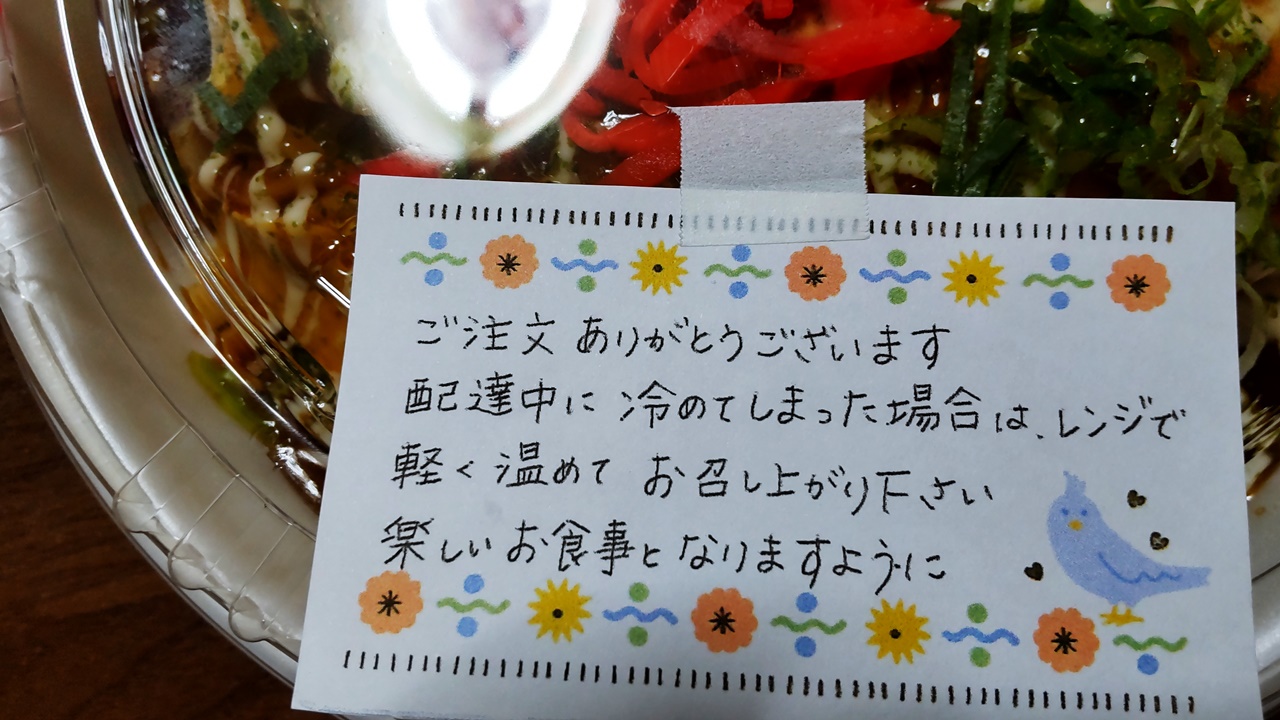 ご注文ありがとうございます
配達中に冷めてしまった場合は、レンジで
軽く温めてお召し上がり下さい
楽しいお食事となりますように